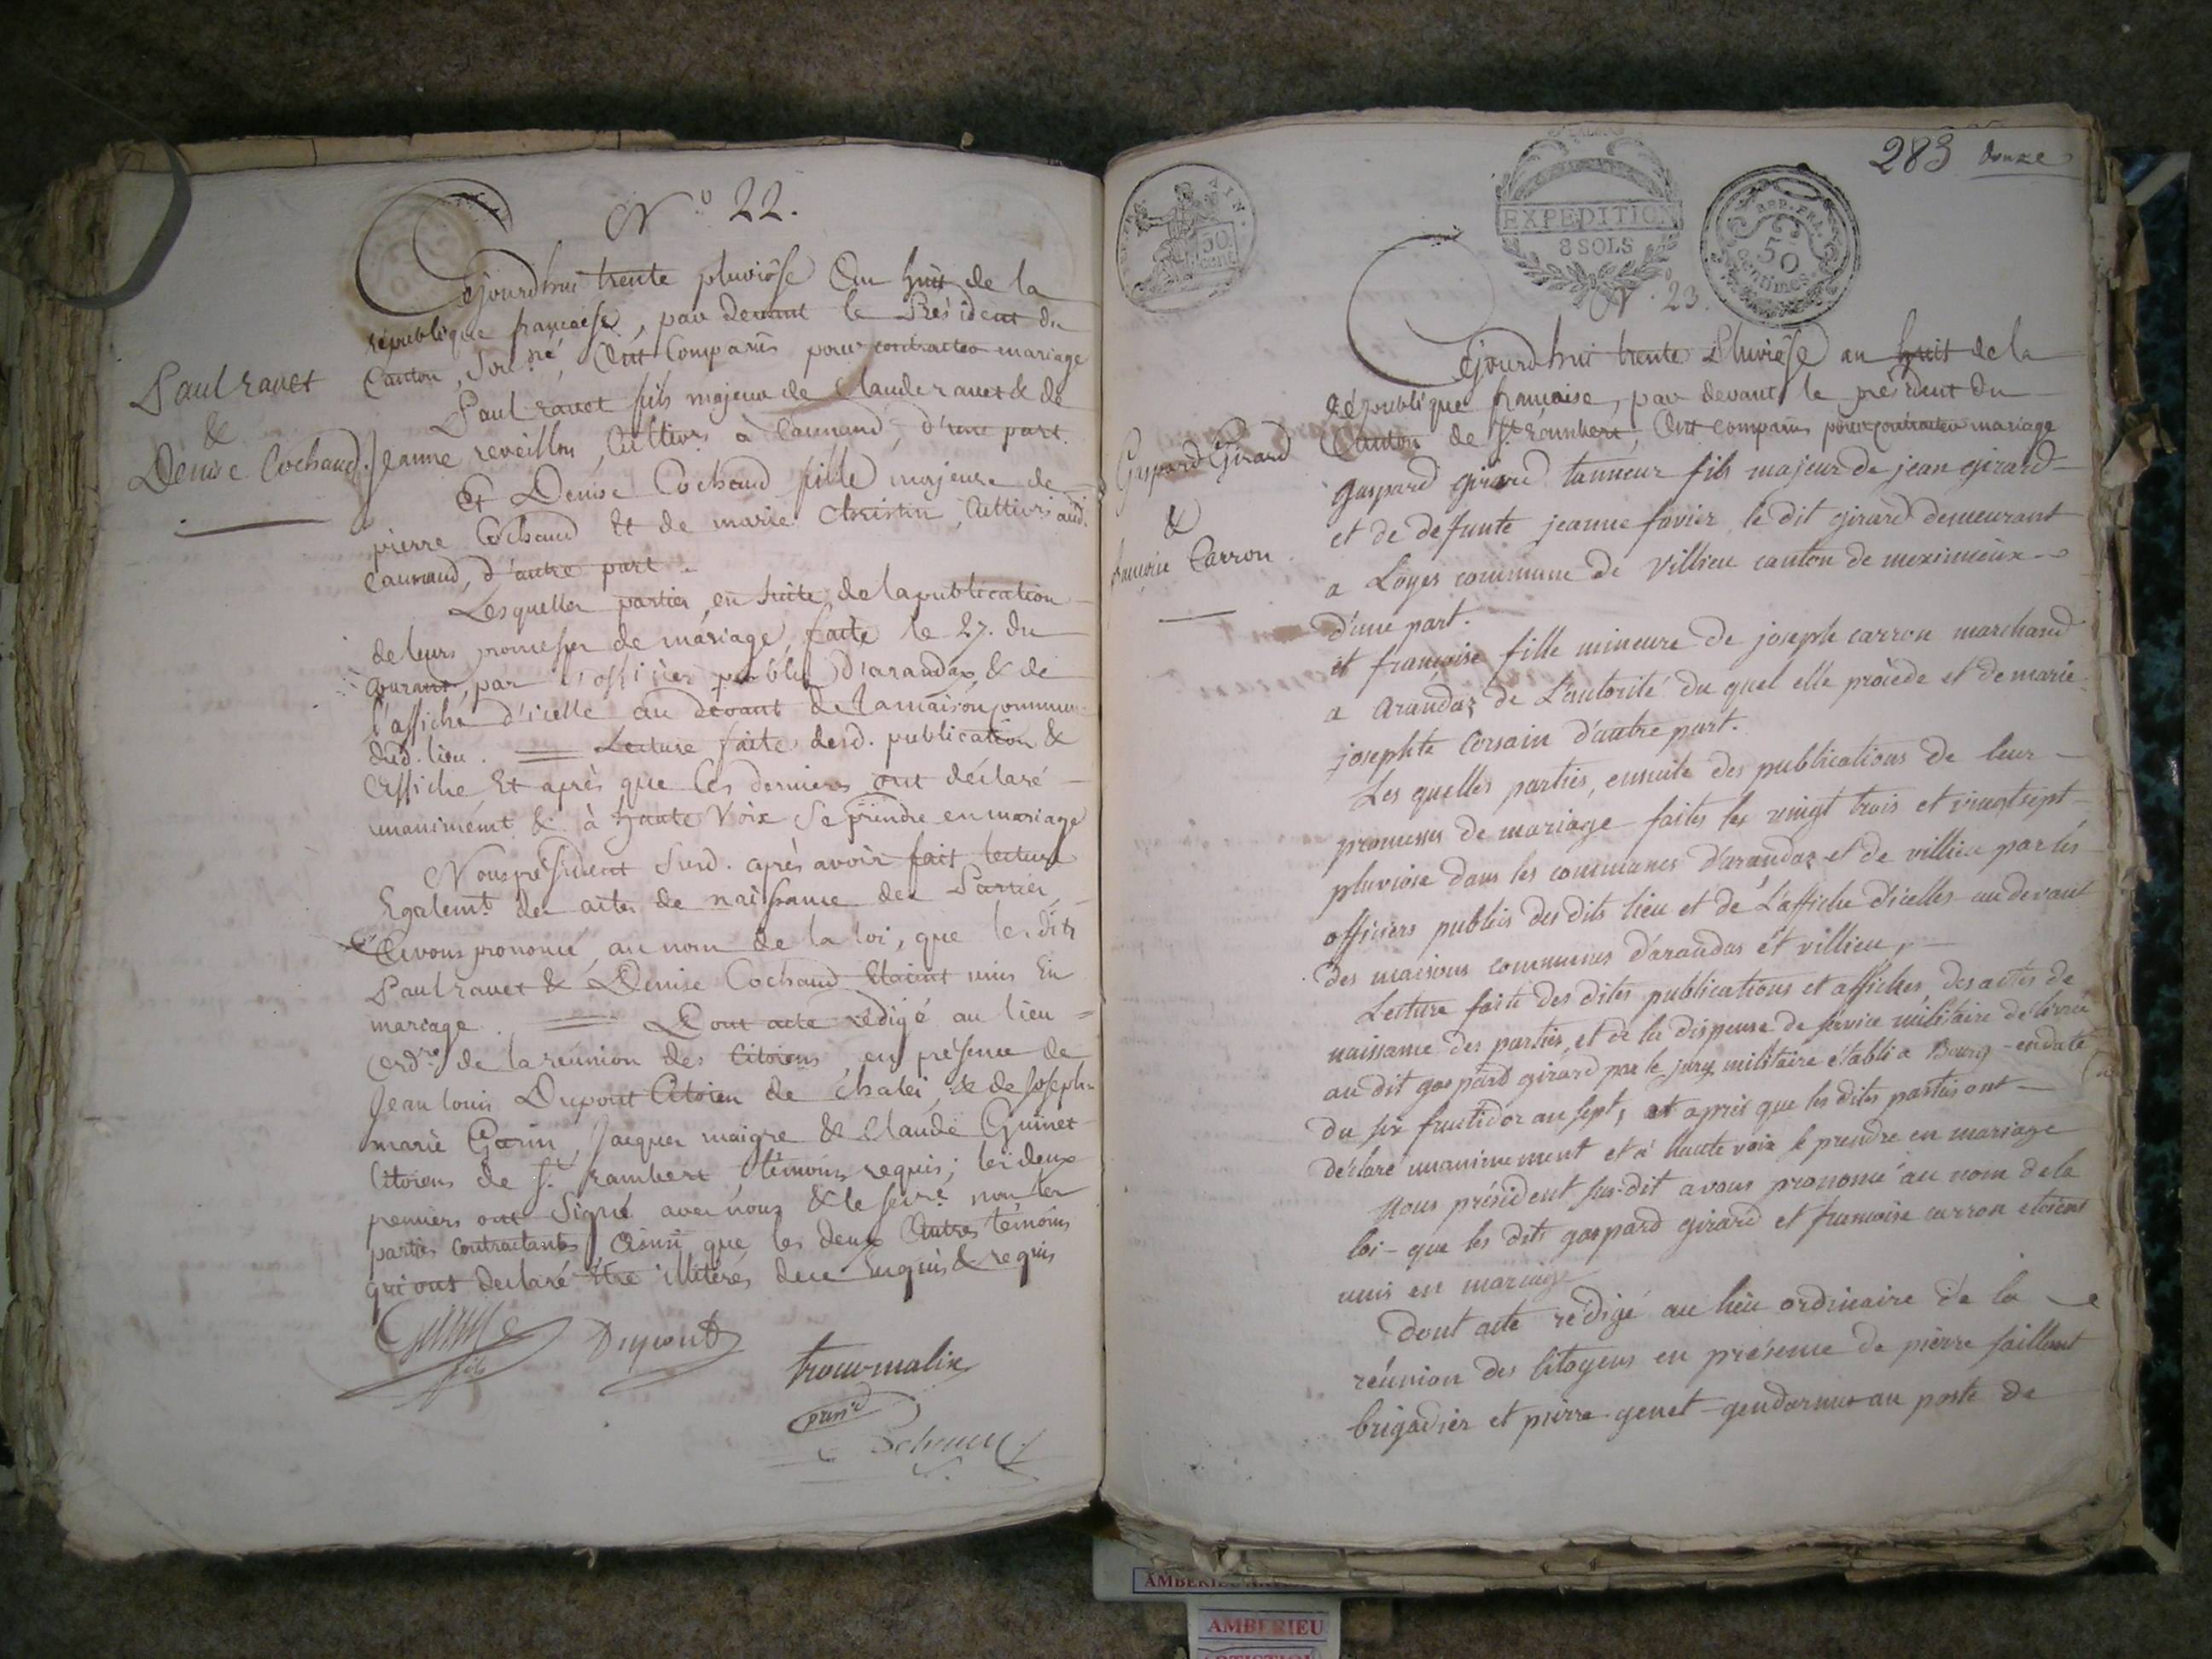 N.º 22.
Cejourdhui trente pluviôse an huit de la
république françaese, par devant le Président du
Canton, sousné, Ont Comparûs pour contracter mariage
Paul ravet fils majeur de Claude ravet & de
Jeanne reveillon, Cultivrs à Caunand, d'une part.
Et Denise Cochaud fille majeure de
pierre Cochaud et de marie Christin, Cultivrs aud.
Caunand, d'autre part.
Lesquelles parties, en suite de la publication
de leurs promesses de mariage, faite le 27. du
Courant, par l'officier public d'arandas & de
l'affiche d'icelle au devant de la maison commune
dud. lieu. Lecture faite desd. publication &
affiche Et après que les derniers ont déclaré
unanimemt & à haute voix se prendre en mariage
Nous président susd. après avoir fait lecture
Egalemt des actes de naissance des Parties,
Avons prononcé, au nom de la loi, que les dits
Paul ravet & Denise Cochaud Etaint unis En
mariage. Dont acte rédigé au lieu
ordre de la réunion des Citoiens en présence de
Jean louis Dupont Citoien de Chaley, & de Joseph
marie Garin, Jacques maigre & Claude Guinet
Citoiens de St. rambert, témoins requis; les deux
premiers ont Signé avec nous & le secré non les
parties contractantes, Ainsi que les deux Autres témoins
qui ont declaré Etre illiterés, de ce Enquis & requis
Paul ravet
&
Denise Cochaud.
Dupont
trocu-malix
présid
283 douze
EXPEDITION
8 SOLS
REP. FRA.
50
centimes
AIN
50
cent
N.º 23.
Cejourd hui trente Pluviôse an huit de la
République francaise, par devant le président du
Canton de St. rambert, Ont comparûs pour contracter mariage
gaspard girard tanneur fils majeur de jean girard
et de defunte jeanne favier, le dit girard demeurant
a Loyes commune de Villieu canton de meximieux
d'une part.
et francoise fille mineure de joseph carron marchand
a arandaz de L'autorité du quel elle procède et de marie
josephte Corsain d'autre part.
Les quelles parties, ensuite des publications de leur
promesses de mariage faites les vingt trois et vingt sept
pluviose dans les communes d'arandaz et de villieu par les
officiers publics des dits lieu et de L'affiche d'icelles au devant
des maisons communes d'arandas et villieu,
Lecture faite des dites publications et affiches, des actes de
naissance des parties, et de la dispense de service militaire délivrée
au dit gaspard girard par le jury militaire établi a Bourg en date
du six fructidor an sept, et après que les dites parties ont
déclaré unanimement et à haute voix se prendre en mariage
Nous président sus-dit avons prononcé au nom de la
loi - que les dits gaspard girard et francoise carron etoient
unis en mariage
dont acte rédigé au lieu ordinaire de la
réunion des Citoyens en présence de pierre faillant
brigadier et pierre genet gendarmes au poste de
Gaspard Girard
&
francoise Carron.
AMBERIEU